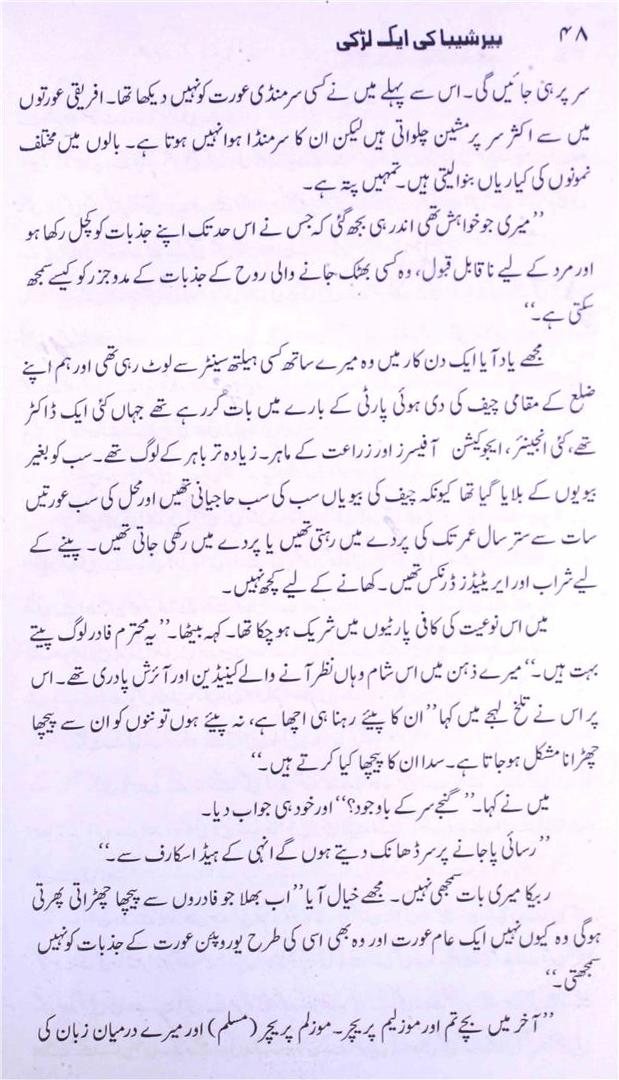 ۴۸ بیر شیبا کی ایک لڑکی
سر پر ہی جائیں گی۔ اس سے پہلے میں نے کسی سر منڈی عورت کو نہیں دیکھا تھا۔ افریقی عورتوں
میں سے اکثر سر پر مشین چلواتی ہیں لیکن ان کا سر منڈا ہوا نہیں ہوتا ہے۔ بالوں میں مختلف
نمونوں کی کیاریاں بنوا لیتی ہیں۔ تمہیں پتہ ہے۔
’’میری جو خواہش تھی اندر ہی بجھ گئی کہ جس نے اس حد تک اپنے جذبات کو کچل رکھا ہو
اور مرد کے لیے نا قابل قبول، وہ کسی بھٹک جانے والی روح کے جذبات کے مدوجزر کو کیسے سمجھ
سکتی ہے۔‘‘
مجھے یاد آیا ایک دن کار میں وہ میرے ساتھ کسی ہیلتھ سینٹر سے لوٹ رہی تھی اور ہم اپنے
ضلع کے مقامی چیف کی دی ہوئی پارٹی کے بارے میں بات کر رہے تھے جہاں کئی ایک ڈاکٹر
تھے، کئی انجینئر، ایجوکیشن آفیسرز اور زراعت کے ماہر۔ زیادہ تر باہر کے لوگ تھے۔ سب کو بغیر
بیویوں کے بلایا گیا تھا کیونکہ چیف کی بیویاں سب کی سب حاجیانی تھیں اور محل کی سب عورتیں
سات سے ستر سال عمر تک کی پردے میں رہتی تھیں یا پردے میں رکھی جاتی تھیں۔ پینے کے
لیے شراب اور ایریٹیڈز ڈرنکس تھیں۔ کھانے کے لیے کچھ نہیں۔
میں اس نوعیت کی کافی پارٹیوں میں شریک ہو چکا تھا۔ کہہ بیٹھا۔ ’’یہ محترم فادر لوگ پیتے
بہت ہیں۔‘‘ میرے ذہن میں اس شام وہاں نظر آنے والے کینڈین اور آئرش پادری تھے۔ اس
پر اس نے تلخ لہجے میں کہا ’’ان کا پیئے رہنا ہی اچھا ہے، نہ پیئے ہوں تو ننوں کو ان سے پیچھا
چھڑانا مشکل ہو جاتا ہے۔ سدا ان کا پیچھا کیا کرتے ہیں۔‘‘
میں نے کہا۔ ’’گنجے سر کے باوجود؟‘‘ اور خود ہی جواب دیا۔
’’رسائی پا جانے پر سر ڈھانک دیتے ہوں گے انہی کے ہیڈ اسکارف سے۔‘‘
ربیکا میری بات سمجھی نہیں۔ مجھے خیال آیا ’’اب بھلا جو فادروں سے پیچھا چھڑاتی پھرتی
ہوگی وہ کیوں نہیں ایک عام عورت اور وہ بھی اسی کی طرح یوروپین عورت کے جذبات کو نہیں
سمجھتی۔‘‘
’’آخر میں بچے تم اور موزلیم پریچر۔ موزلم پریچر (مسلم) اور میرے درمیان زبان کی